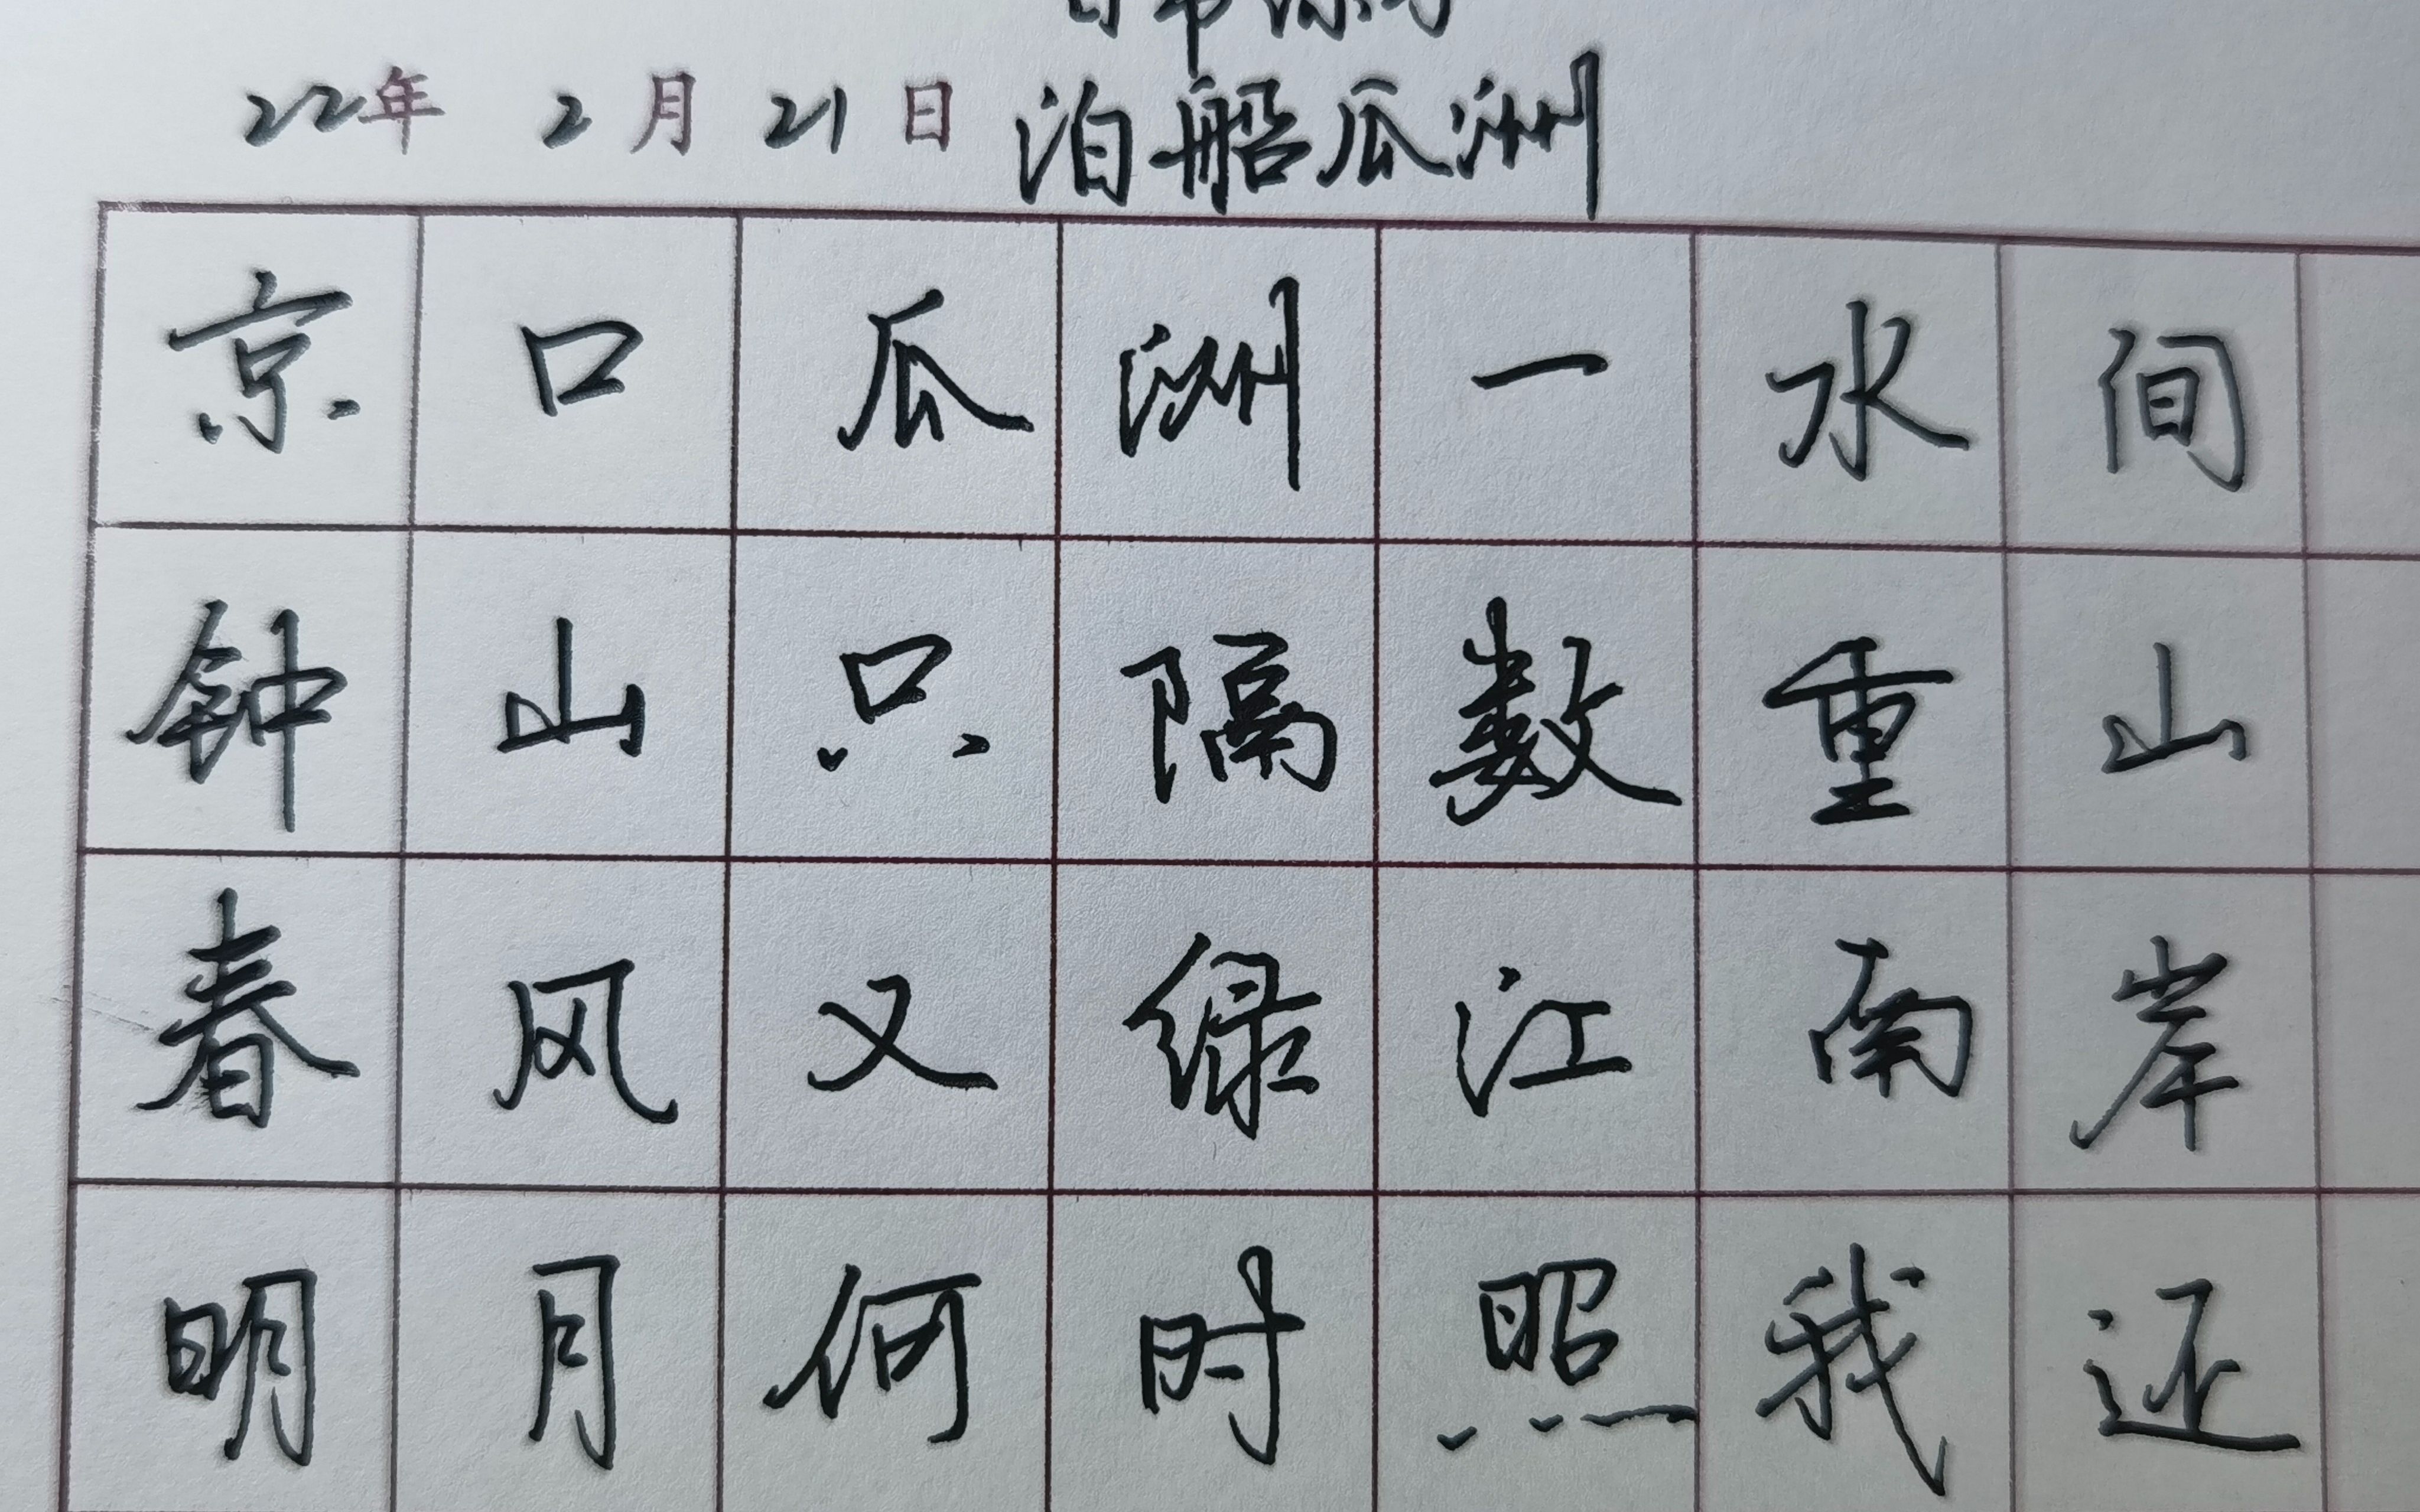 22年 2月 21日 泊船瓜洲
京口瓜洲一水间
钟山只隔数重山
春风又绿江南岸
明月何时照我还